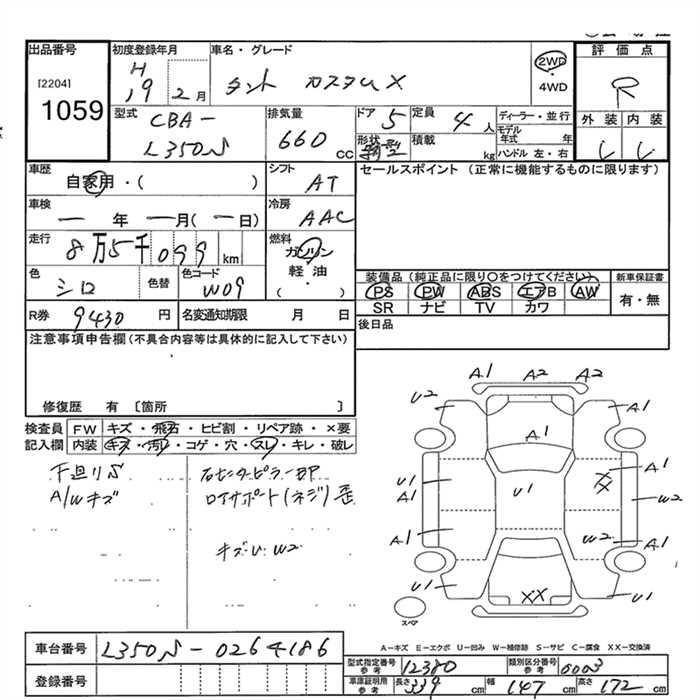 出品番号
[2204]
1059
初度登録年月
H
19 2月
車名・グレード
タント カスタムX
2WD
・
4WD
評価点
R
型式
CBA-
L350S
排気量
660
CC
ドア
5
定員
4人
形状
箱型
積載
kg
ディーラー・並行
モデル
年式 年
ハンドル 左・右
外装 内装
車歴
自家用・( )
シフト
AT
セールスポイント (正常に機能するものに限ります)
車検
一年 一月(一日)
冷房
AAC
走行
8万5千099km
燃料
ガソリン
軽油
・
( )
色
シロ
色替
色コード
W09
装備品(純正品に限り○をつけてください)
PS PW ABS エアB AW
SR ナビ TV カワ
新車保証書
有・無
R券
9430円
名変通知期限 月 日
後日品
注意事項申告欄(不具合内容等は具体的に記入して下さい)
修復歴 有 〔箇所 〕
検査員
記入欄
FW キズ・飛石・ヒビ割・リペア跡・×要
内装 キズ・汚れ・コゲ・穴・スレ・キレ・破レ
下廻りS
A/Wキズ
右センターピラー部
ロアサポート(ネジ)歪
キズU W2
A1 A2 A2
U2 A1
A1
U1
A1
U1
A1
XX
W2
A1
W2
A1
U1
XX
U1
スペア
A-キズ E-エクボ U-凹み W-補修跡 S-サビ C-腐食 XX-交換済
車台番号
L350S-0264186
登録番号
型式指定番号
参考
12380
類別区分番号
参考
0003
車庫証明用
参考
長さ
339cm
幅
147cm
高さ
172cm